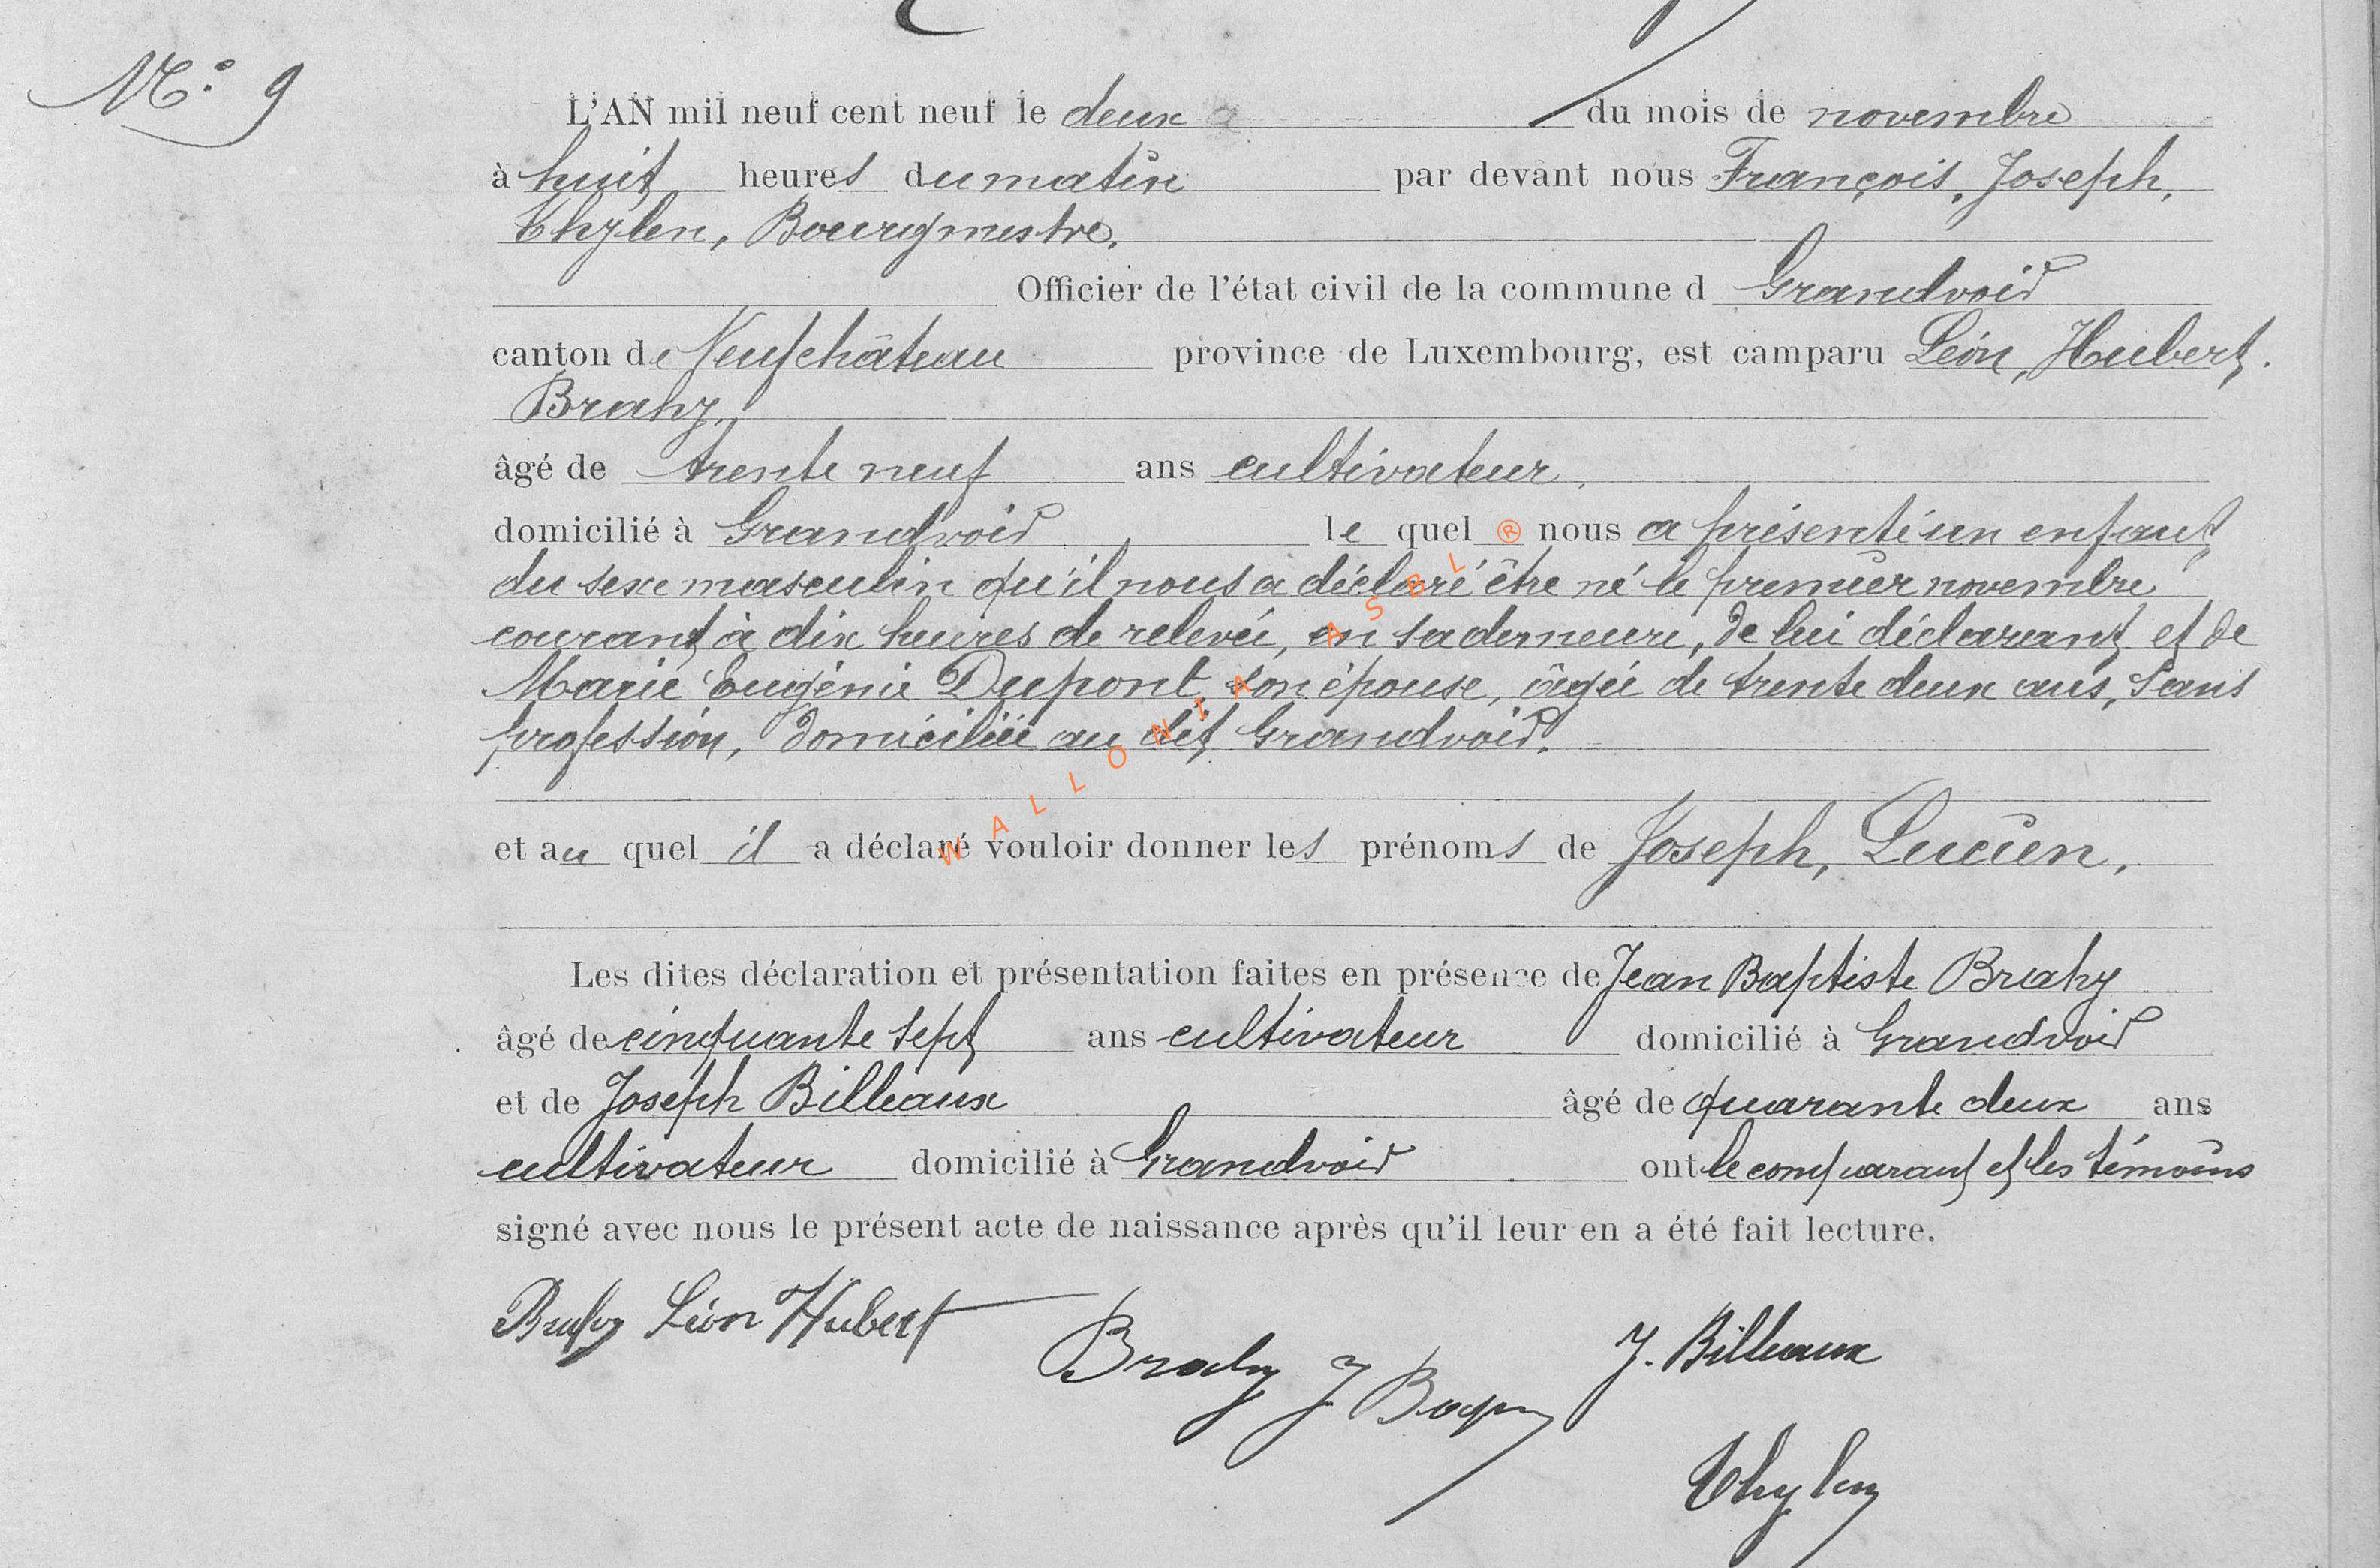 N° 9
L'AN mil neuf cent neuf le deux du mois de novembre
à huit heures du matin par devant nous François, Joseph,
Thylen, Bourgmestre,
Officier de l'état civil de la commune d Grandvoir
canton de Neufchâteau province de Luxembourg, est camparu Léon, Hubert.
Brahy,
âgé de trente neuf ans cultivateur,
domicilié à Grandvoir le quel nous a présenté un enfant
du sexe masculin qu'il nous a déclaré être né le premier novembre
courant à dix heures de relevée, en sa demeure, de lui déclarant et de
Marie Eugénie Dupont, son épouse, âgée de trente deux ans, sans
profession, domiciliée au dit Grandvoir.
et au quel il a déclaré vouloir donner les prénoms de Joseph, Lucien,
Les dites déclaration et présentation faites en présence de Jean Baptiste Brahy
âgé de cinquante sept ans cultivateur domicilié à Grandvoir
et de Joseph Billeaux âgé de quarante deux ans
cultivateur domicilié à Grandvoir ont le comparant et les témoins
signé avec nous le présent acte de naissance après qu'il leur en a été fait lecture.
Brahy Léon Hubert
Brahy J Bap
J. Billeaux
Thylen
WALLONIA ASBL ®